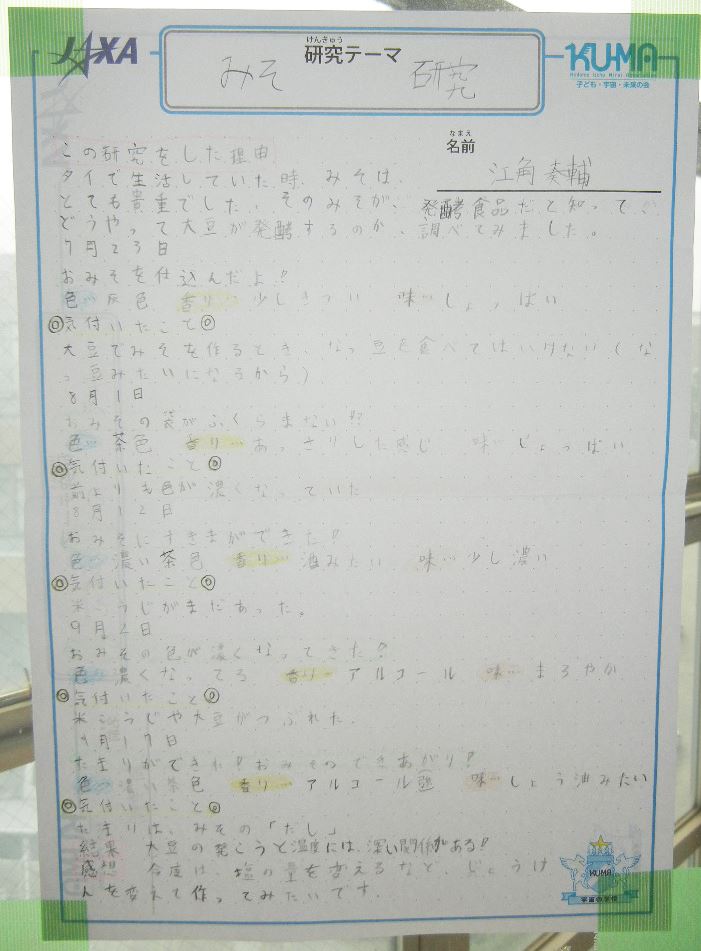 JAXA
けんきゅう
研究テーマ
みそ 研究
KU-MA
子ども・宇宙・未来の会
なまえ
名前
江角 奏輔
この研究をした理由
タイで生活していた時、みそは、
とても貴重でした。そのみそが、発酵食品だと知って
どうやって大豆が発酵するのか、調べてみました。
7月23日
おみそを仕込んだよ!!
色…灰色 香り…少しきつい 味…しょっぱい
◎気付いたこと◎
大豆でみそを作るとき、なっ豆を食べてはいけない(な
っ豆みたいになるから)
8月1日
おみその袋がふくらまない!?
色…茶色 香り…あっさりした感じ 味…しょっぱい
◎気付いたこと◎
前よりも色が濃くなっていた
8月12日
おみそにすきまができた!!
色…濃い茶色 香り…酒みたい 味…少し濃い
◎気付いたこと◎
米こうじがまだあった。
9月2日
おみその色が濃くなってきた?
色…濃くなってる 香り…アルコール 味…まろやか
◎気付いたこと◎
米こうじや大豆がつぶれた.
9月17日
たまりができた!!おみそのできあがり?
色…濃い茶色 香り…アルコール強 味…しょう油みたい
◎気付いたこと◎
たまりは、みその「だし」
結果 大豆の発こうと温度には、深い関係がある!!
感想 今度は、塩の量を変えるなど、じょうけ
んを変えて作ってみたいです.
KUMA
宇宙の学校